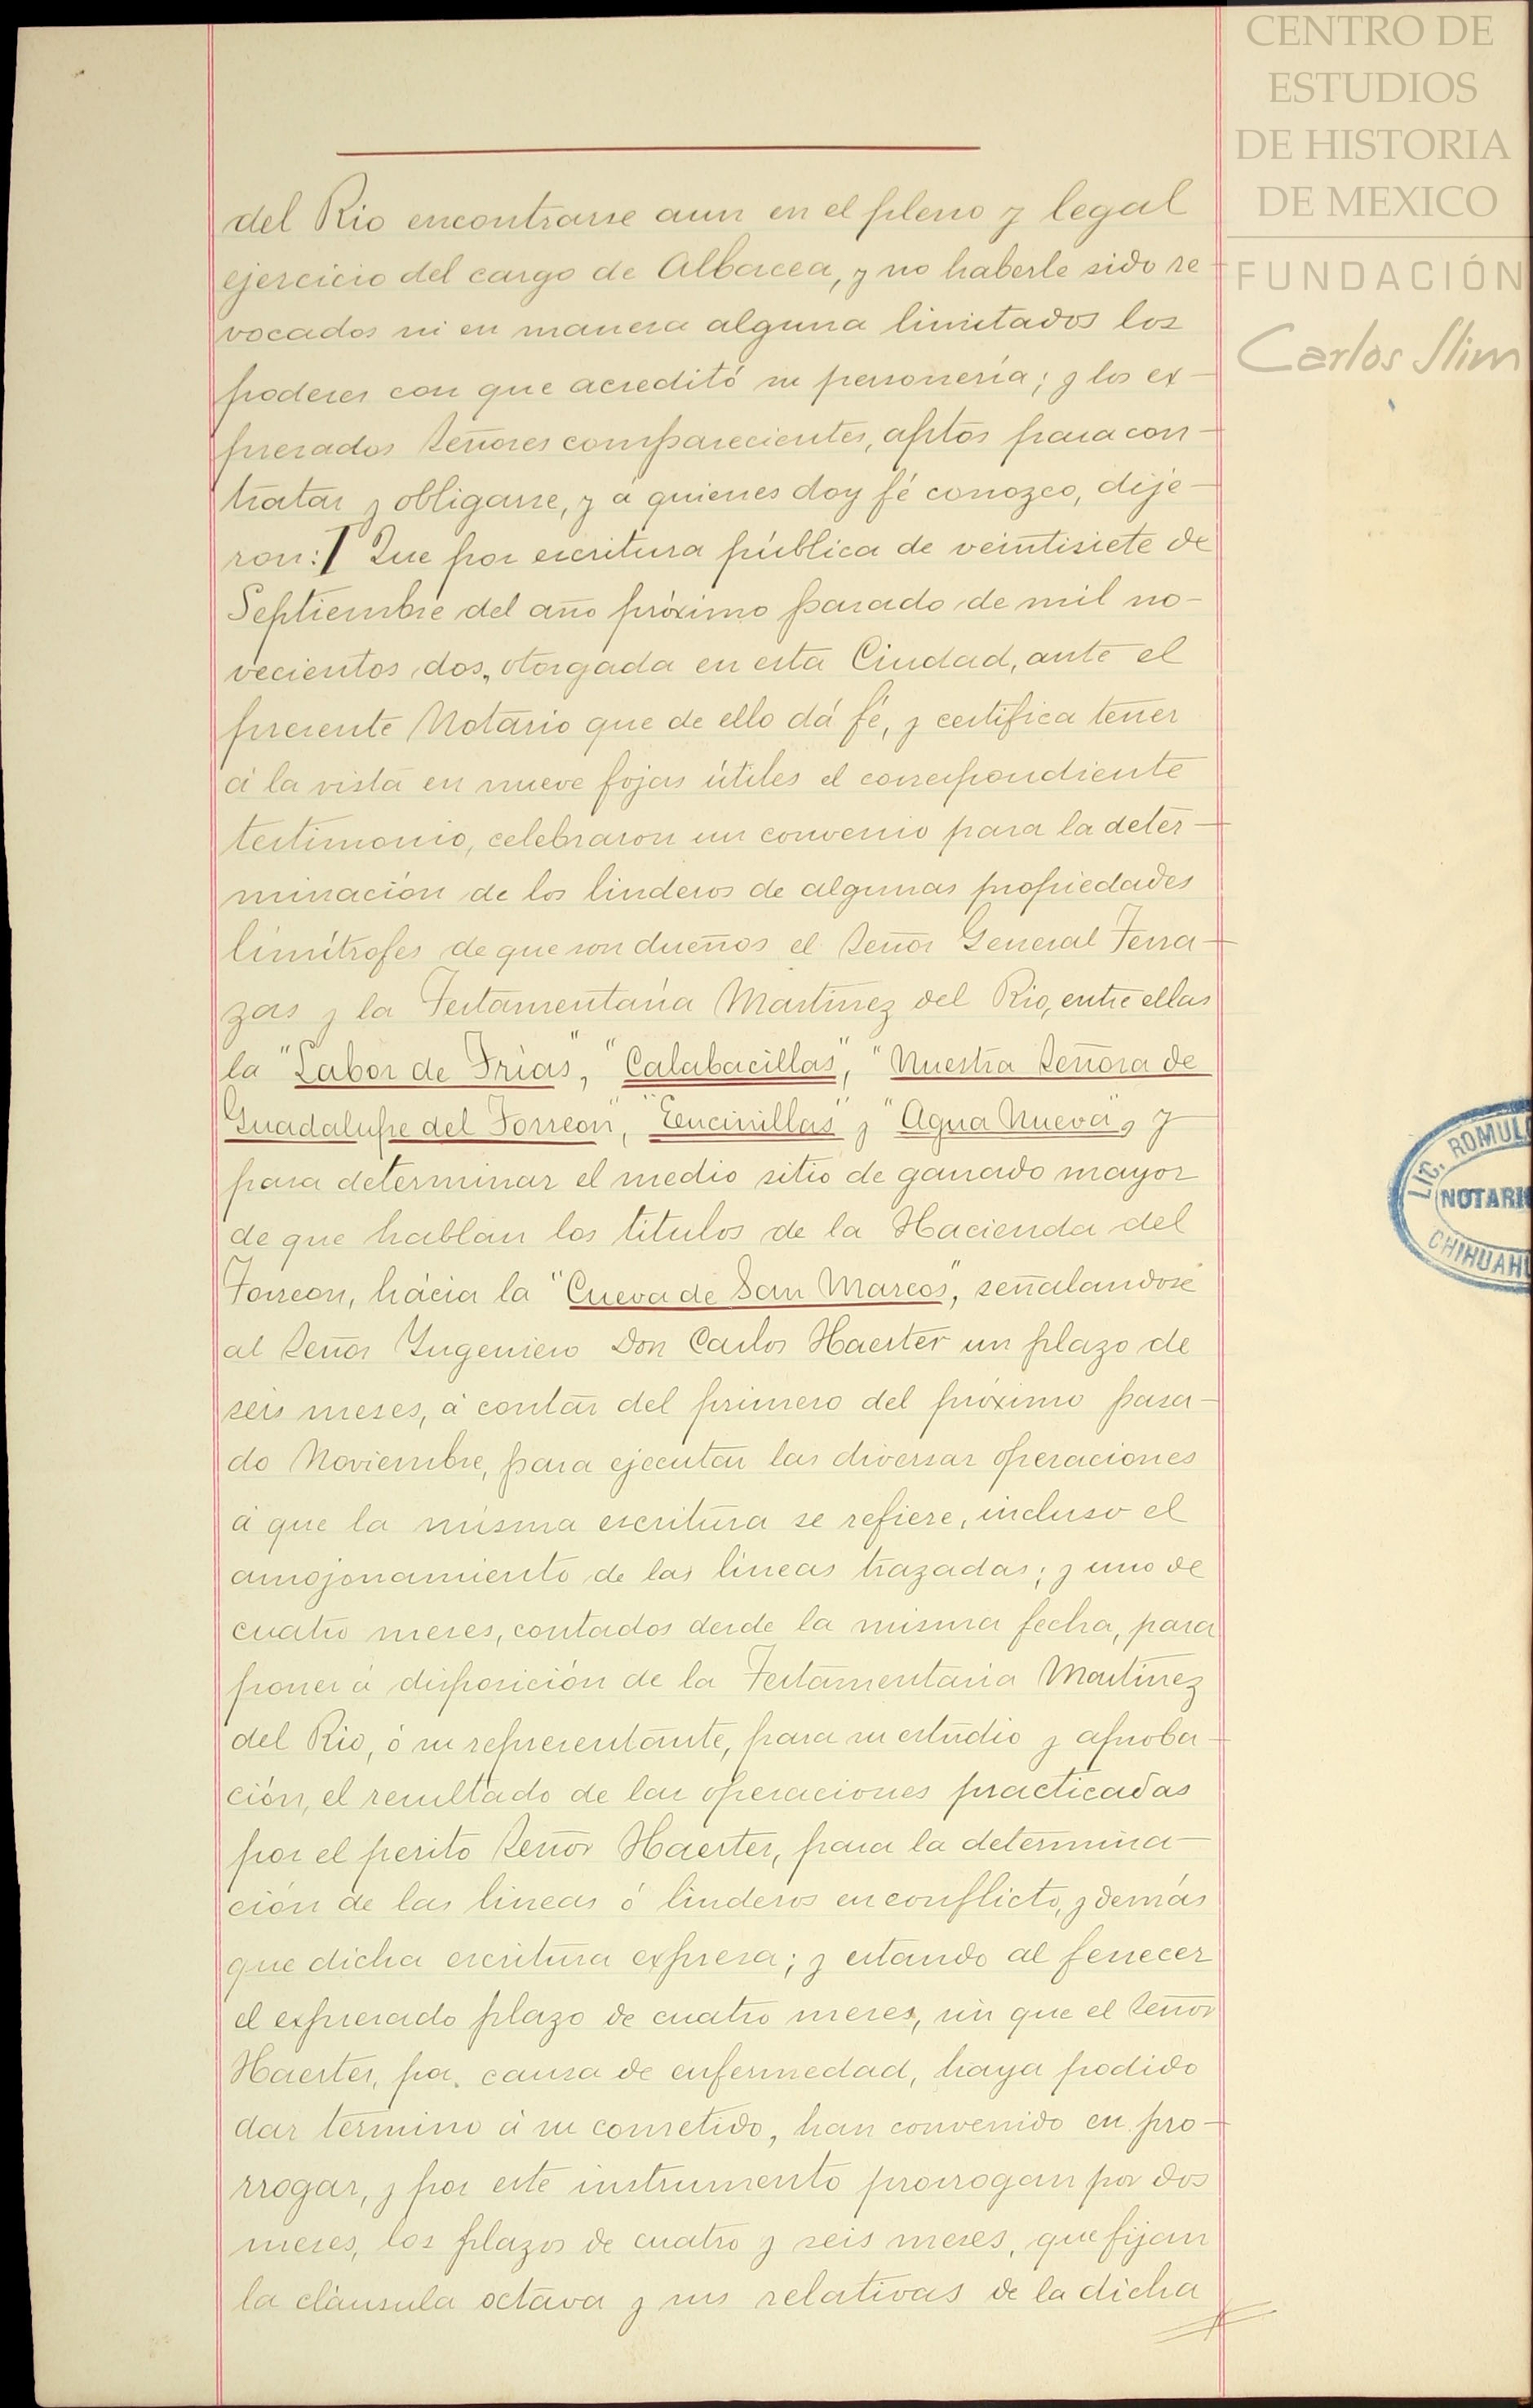 CENTRO DE
ESTUDIOS
DE HISTORIA
DE MEXICO
FUNDACIÓN
Carlos Slim
del Rio encontrarse aun en el pleno y legal
ejercicio del cargo de Albacea, y no haberle sido re-
vocados ni en manera alguna limitados los
poderes con que acreditó su personería; y los ex-
presados Señores comparecientes, aptos para con-
tratar y obligarse, y á quienes doy fé conozco, dije-
ron:/ Que por escritura pública de veintisiete de
Septiembre del año próximo pasado de mil no-
vecientos dos, otorgada en esta Ciudad, ante el
presente Notario que de ello dá fé, y certifica tener
á la vista en nueve fojas útiles el correspondiente
testimonio, celebraron un convenio para la deter-
minación de los linderos de algunas propiedades
limítrofes de que son dueños el Señor General Terra-
zas y la Testamentaría Martinez del Rio, entre ellas
la "Labor de Frias", "Calabacillas", "Nuestra Señora de
Guadalupe del Torreon", "Encinillas" y "Agua Nueva", y
para determinar el medio sitio de ganado mayor
de que hablan los títulos de la Hacienda del
Torreon, hácia la "Cueva de San Marcos", señalandose
al Señor Ingeniero Don Carlos Haerter un plazo de
seis meses, á contar del primero del próximo pasa-
do Noviembre, para ejecutar las diversas operaciones
á que la misma escritura se refiere, incluso el
amojonamiento de las líneas trazadas; y uno de
cuatro meses, contados desde la misma fecha, para
poner á disposición de la Testamentaría Martinez
del Rio, ó su representante, para su estudio y aproba-
ción, el resultado de las operaciones practicadas
por el perito Señor Haerter, para la determina-
ción de las líneas ó linderos en conflicto, y demás
que dicha escritura expresa; y estando al fenecer
el expresado plazo de cuatro meses, sin que el Señor
Haerter, por causa de enfermedad, haya podido
dar término á su cometido, han convenido en pro-
rrogar, y por este instrumento prorrogan por dos
meses, los plazos de cuatro y seis meses, que fijan
la cláusula octava y sus relativas de la dicha
LIC. ROMUL
NOTARI
CHIHUAH